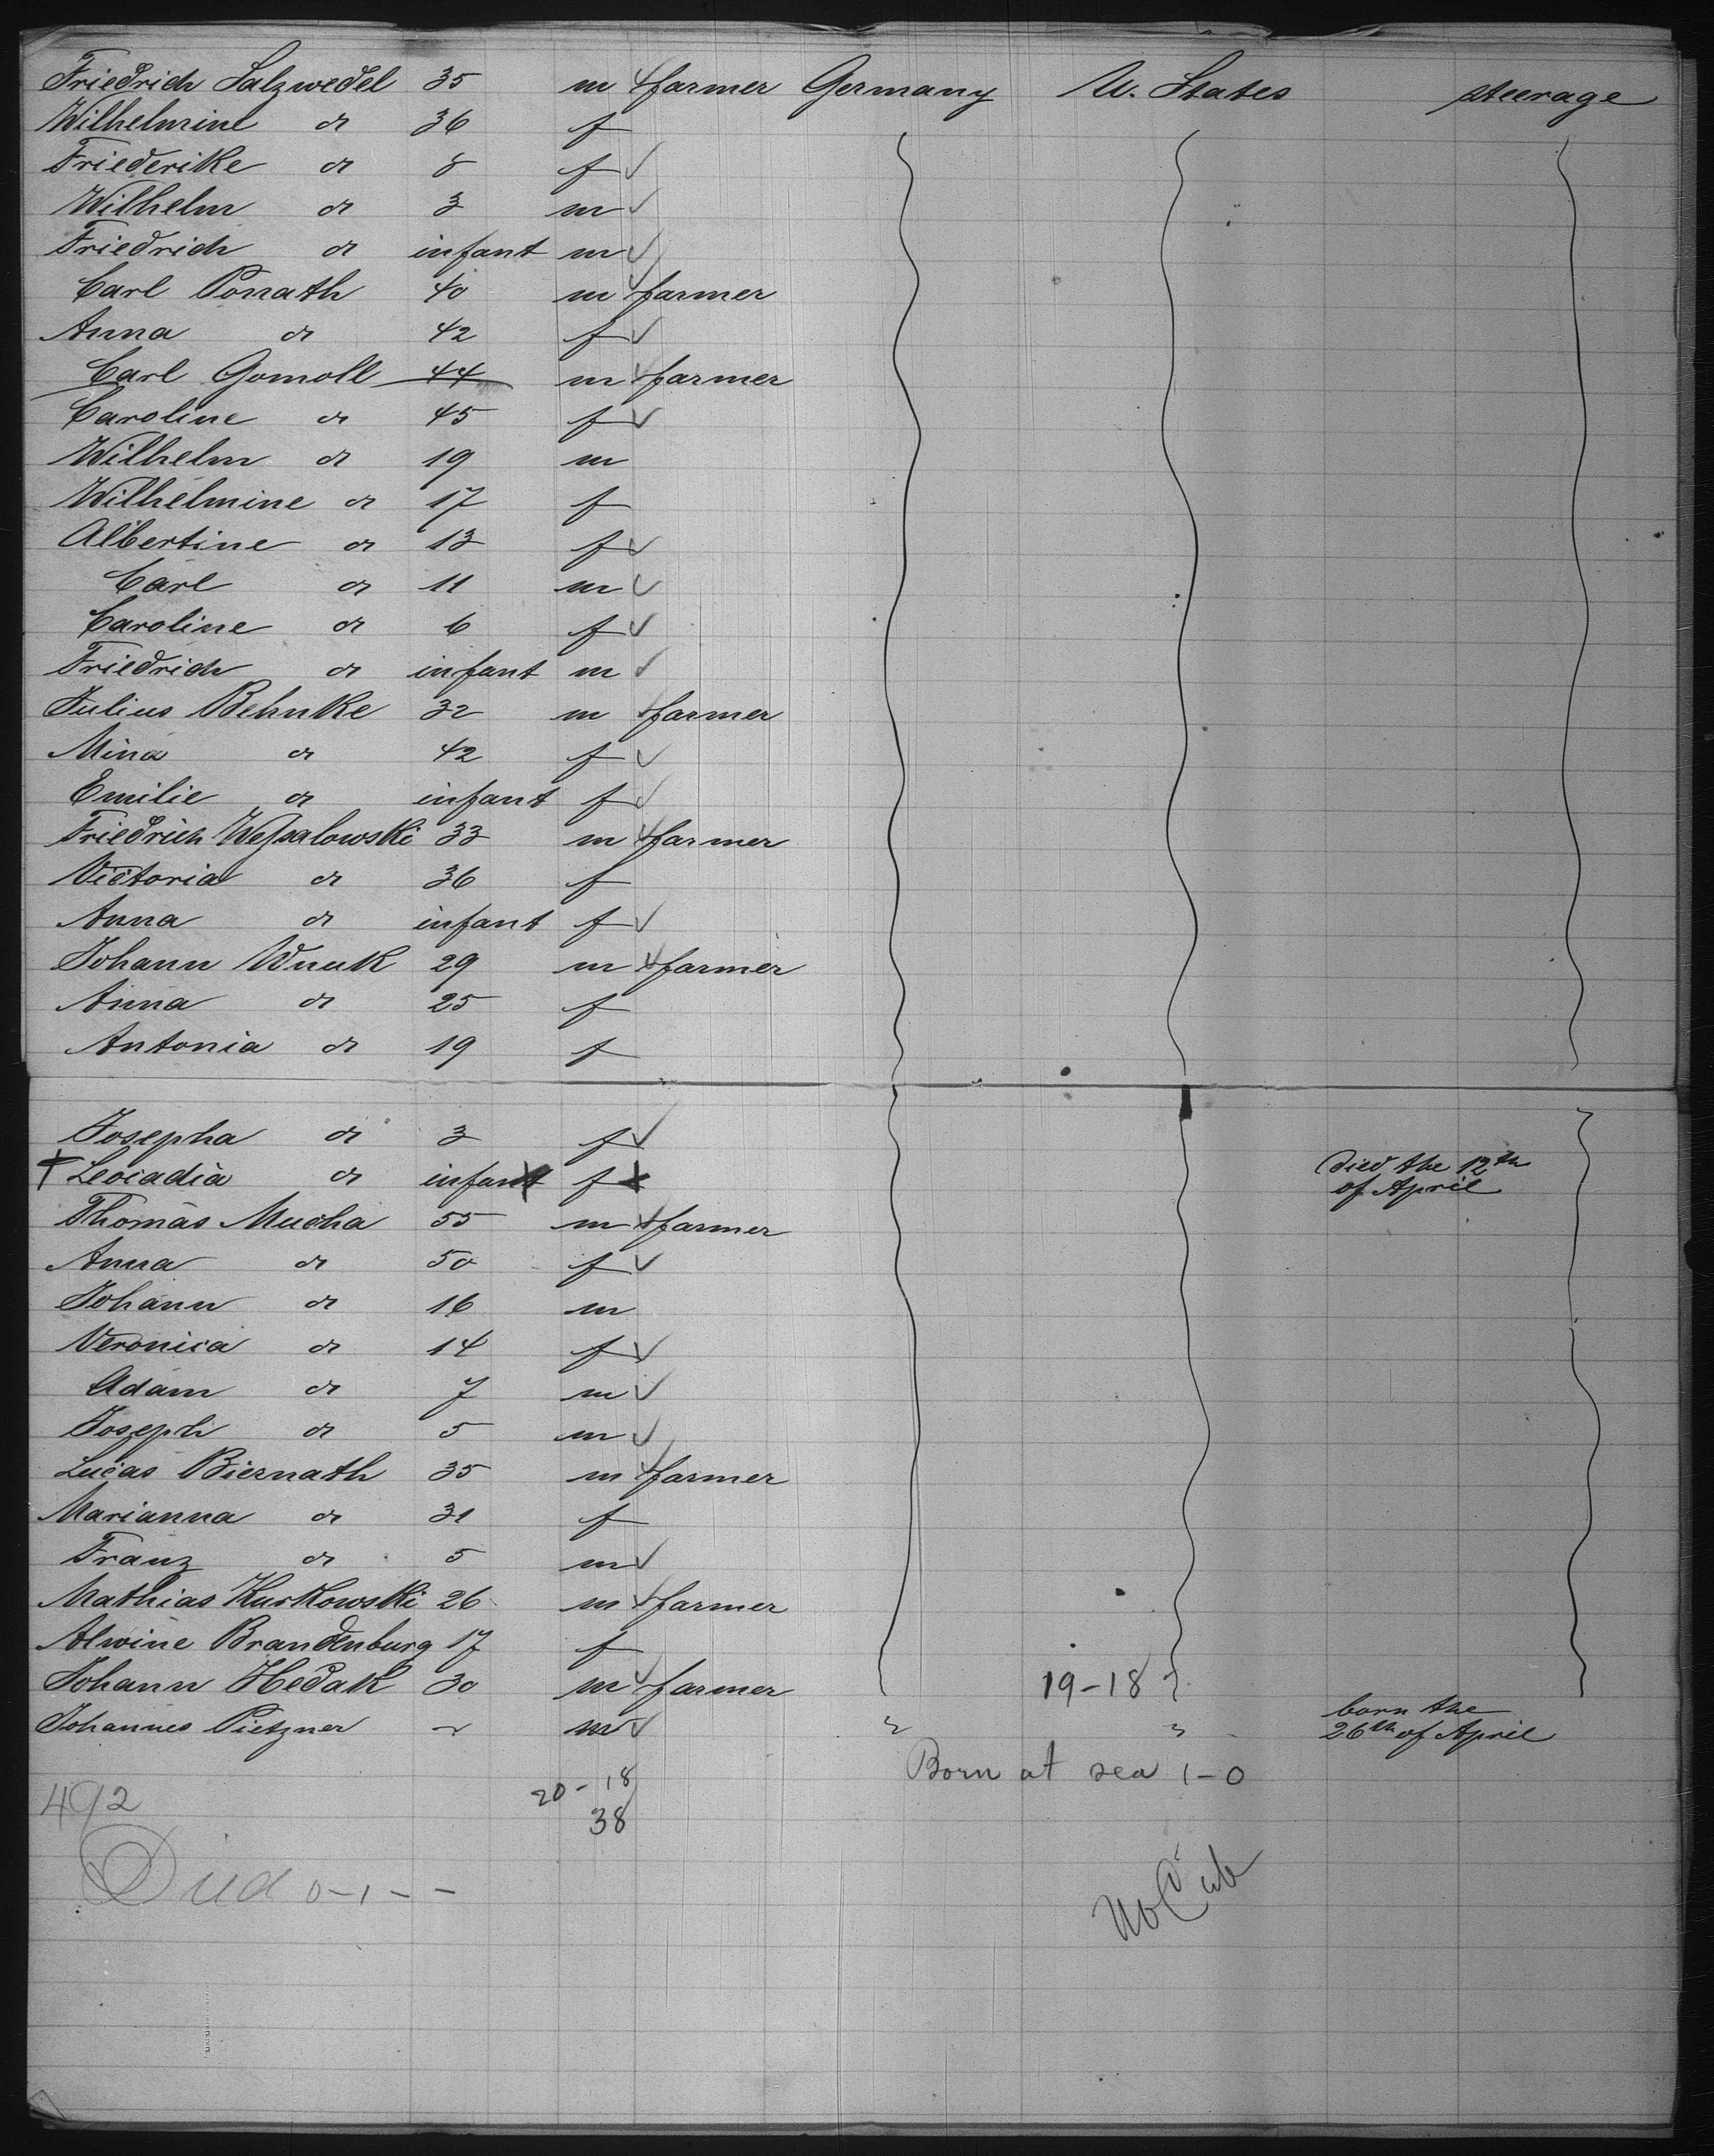 Friedrich Salzwedel 35 m farmer Germany U. States steerage
Wilhelmine do 36 f
Friederike do 8 f
Wilhelm do 3 m
Friedrich do infant m
Carl Ponath 40 m farmer
Anna do 42 f
Carl Gomoll 44 m farmer
Caroline do 45 f
Wilhelm do 19 m
Wilhelmine do 17 f
Albertine do 13 f
Carl do 11 m
Caroline do 6 f
Friedrich do infant m
Julius Behnke 32 m farmer
Mina do 42 f
Emilie do infant f
Friedrich 33 m farmer
Victoria do 36 f
Anna do infant f
Johann Wnuk 29 m farmer
Anna do 25 f
Antonia do 19 f
Josepha do 3 f
† Leocadia do infant f died the 12th
of April
Thomas Mucha 55 m farmer
Anna do 50 f
Johann do 16 m
Veronica do 14 f
Adam do 7 m
Joseph do 5 m
Lucas Biernath 35 m farmer
Marianna do 31 f
Franz do 5 m
Mathias Kurkowski 26 m farmer
Alwine Brandenburg 17 f
Johann Hedak 30 m farmer 19-18
Johannes Pietzner m born the
26th of April
Born at sea 1-0
492 20-18
38
Died 0-1--